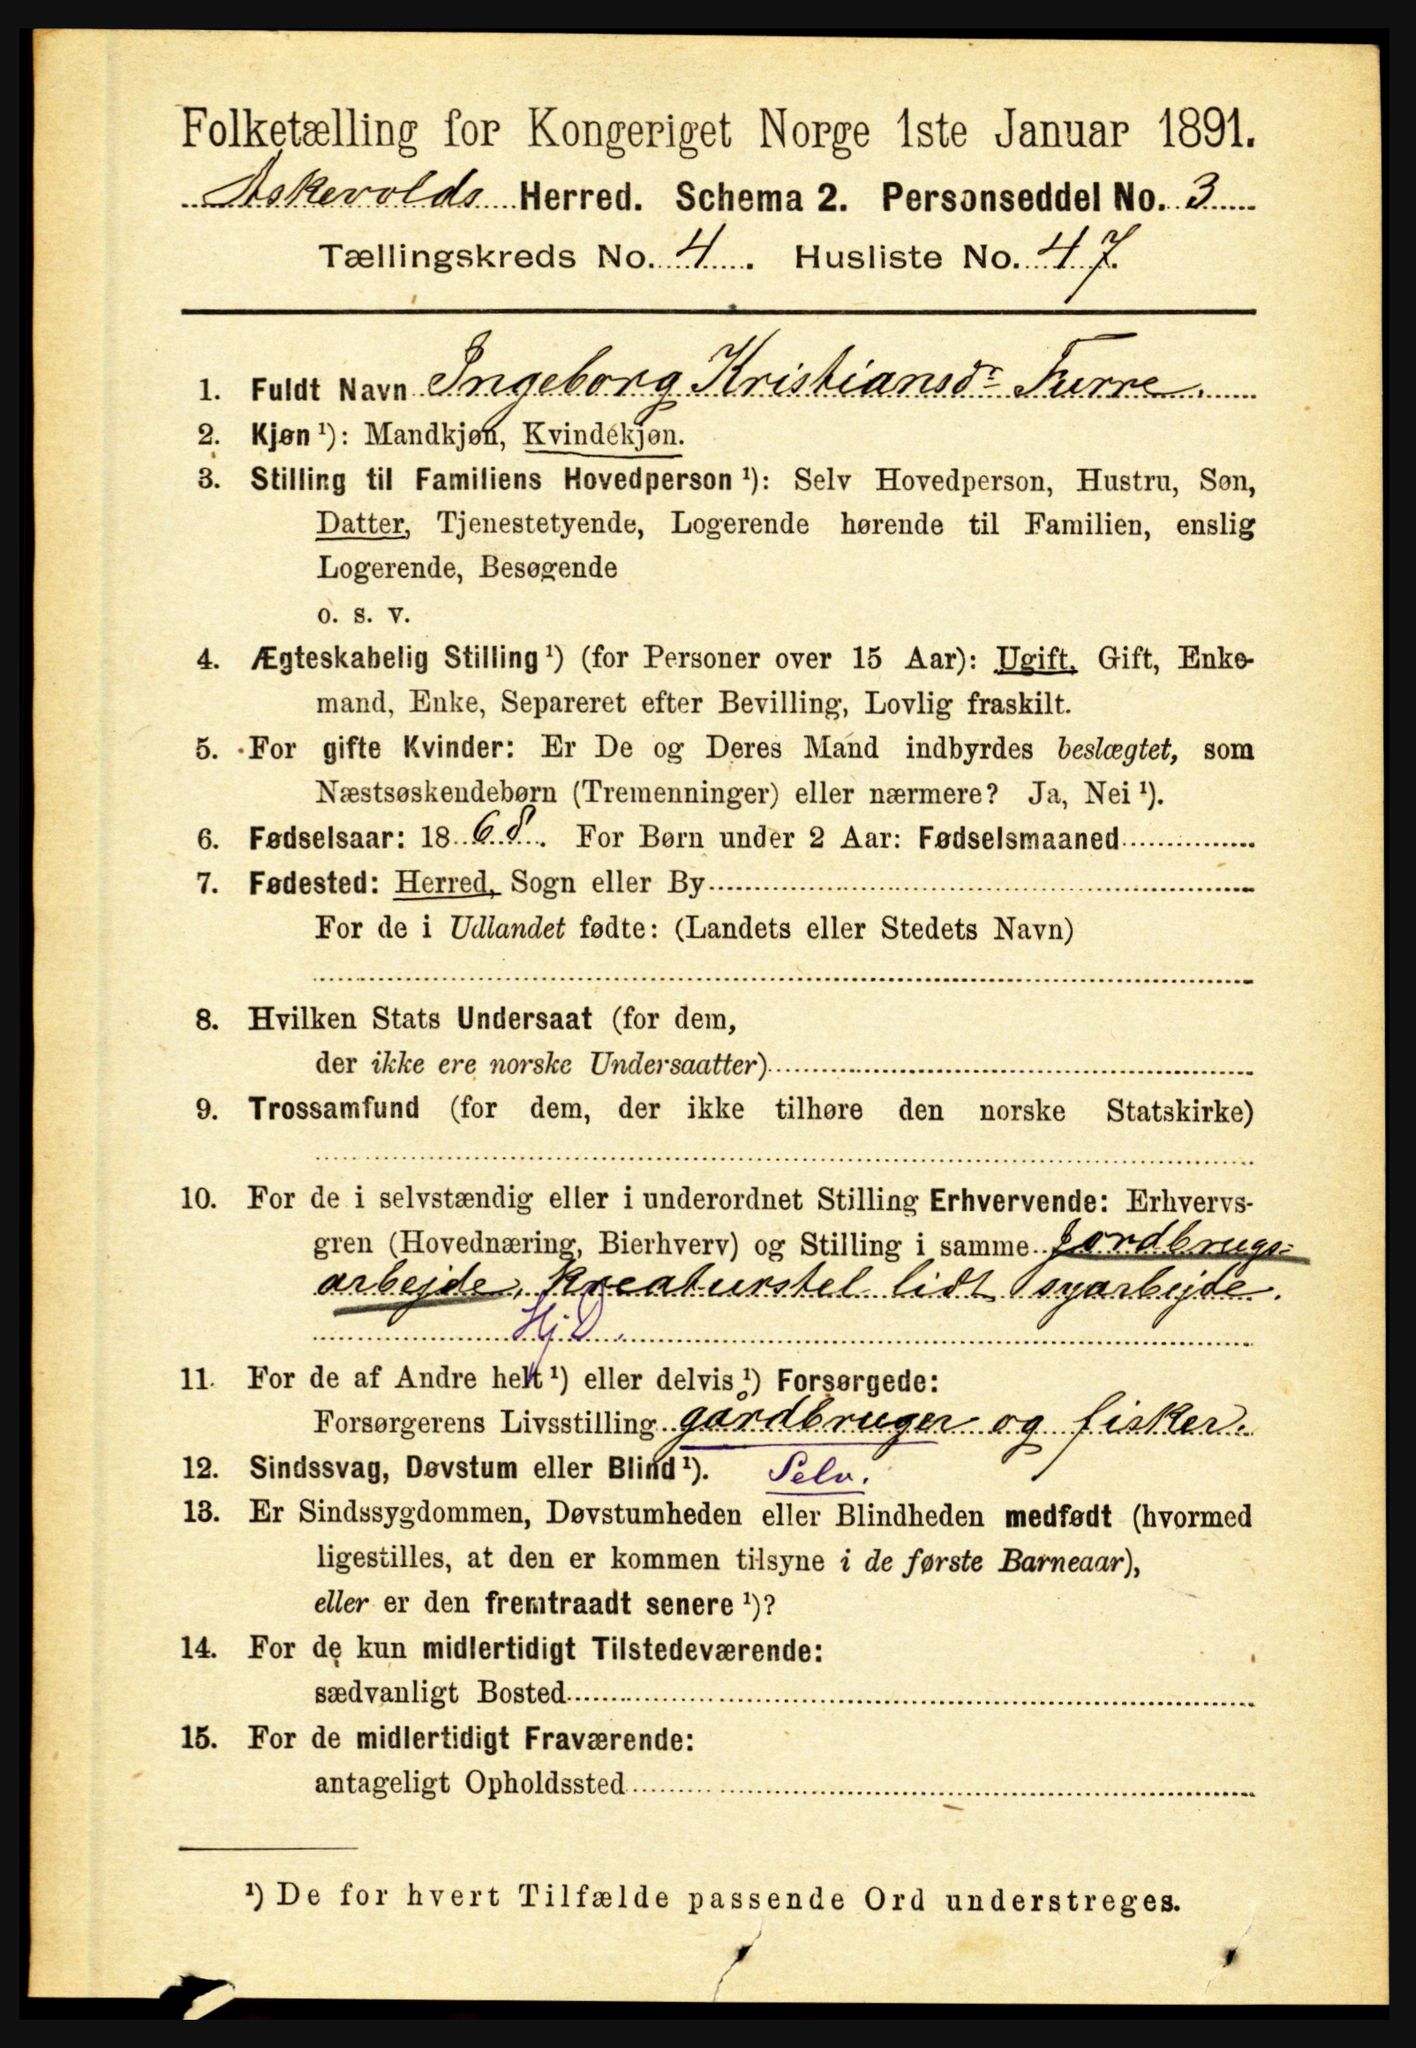 Folketælling for Kongeriget Norge 1ste Januar 1891.
Askevolds Herred. Schema 2. Personseddel No. 3
Tællingskreds No. 4. Husliste No. 47.
1. Fuldt Navn Ingeborg Kristiansdr Furre.
2. Kjøn ¹): Mandkjøn, Kvindekjøn.
3. Stilling til Familiens Hovedperson ¹): Selv Hovedperson, Hustru, Søn,
Datter, Tjenestetyende, Logerende hørende til Familien, enslig
Logerende, Besøgende
o. s. v.
4. Ægteskabelig Stilling ¹) (for Personer over 15 Aar): Ugift, Gift, Enke-
mand, Enke, Separeret efter Bevilling, Lovlig fraskilt.
5. For gifte Kvinder: Er De og Deres Mand indbyrdes beslægtet, som
Næstsøskendebørn (Tremenninger) eller nærmere? Ja, Nei ¹).
6. Fødselsaar: 1868. For Børn under 2 Aar: Fødselsmaaned
7. Fødested: Herred, Sogn eller By
For de i Udlandet fødte: (Landets eller Stedets Navn)
8. Hvilken Stats Undersaat (for dem,
der ikke ere norske Undersaatter)
9. Trossamfund (for dem, der ikke tilhøre den norske Statskirke)
10. For de i selvstændig eller i underordnet Stilling Erhvervende: Erhvervs-
gren (Hovednæring, Bierhverv) og Stilling i samme Jordbrugs-
arbejde, kreaturstel lidt syarbejde.
Hj D.
11. For de af Andre helt ¹) eller delvis ¹) Forsørgede:
Forsørgerens Livsstilling gårdbruger og fisker.
12. Sindssvag, Døvstum eller Blind ¹). Selv.
13. Er Sindssygdommen, Døvstumheden eller Blindheden medfødt (hvormed
ligestilles, at den er kommen tilsyne i de første Barneaar),
eller er den fremtraadt senere ¹)?
14. For de kun midlertidigt Tilstedeværende:
sædvanligt Bosted
15. For de midlertidigt Fraværende:
antageligt Opholdssted
¹) De for hvert Tilfælde passende Ord understreges.